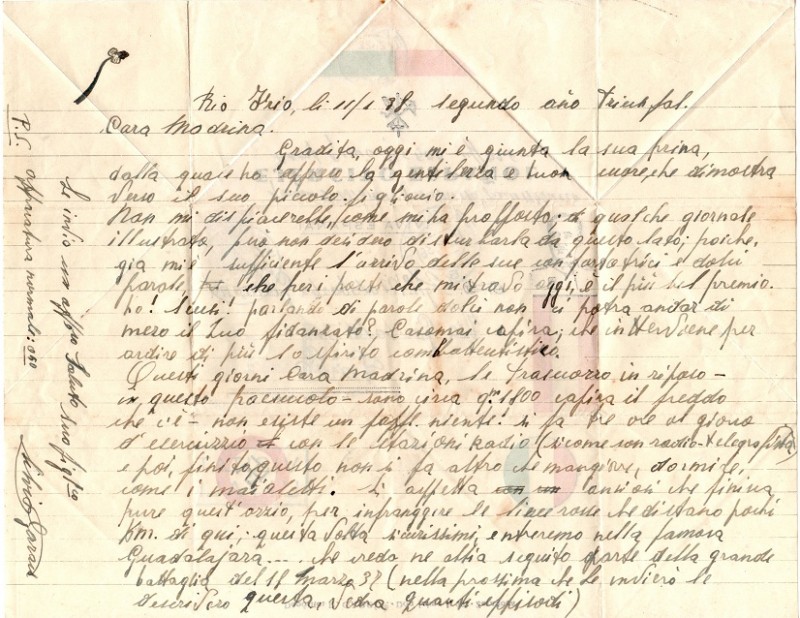 Rio Frio, li 11/1 38 segundo año Triunfal.
Cara Madrina.
Gradita, oggi mi è giunta la sua prima,
dalla quale ho appreso la gentilezza e buon cuore, che dimostra
verso il suo piccolo figlioccio.
Non mi dispiacerebbe, come mi ha proffosto: di qualche giornale
illustrato, però non desidero disturbarla da questo lato; poiche,
gia mi è sufficiente l'arrivo delle sue confortatrici e dolci
parole, che per i posti che mi trovo oggi, è il più bel premio.
ho! Scusi! parlando di parole dolci non ci potra andar di
mezzo il suo fidanzato? Casomai capira; che interviene per
ardire di più lo spirito combattentistico.
Questi giorni Cara Madrina, le trascorro in riposo -
in questo paesucolo - sono circa 1100 capira il freddo
che c'è - non esiste un niente! si fa tre ore al giorno
d'esercizio con le stazioni Radio (siccome son radio-telegrafista)
e poi, finito questo non si fa altro che mangiare, dormire,
come i maialetti. Si aspetta ansiosi che finisca
pure quest'ozzio, per infranggere le linee rosse che distano pochi
Km. di qui; questa volta sicurissimi, entreremo nella famosa
Guadalajara.... che credo ne abbia seguito parte della grande
battaglia del 18 Marzo 37 (nella prossima che Le invierò le
descriverò questa, vedra quanti episodi)
Le invio un affmo Saluto suo figlio
P.S. affrancatura normale: 050